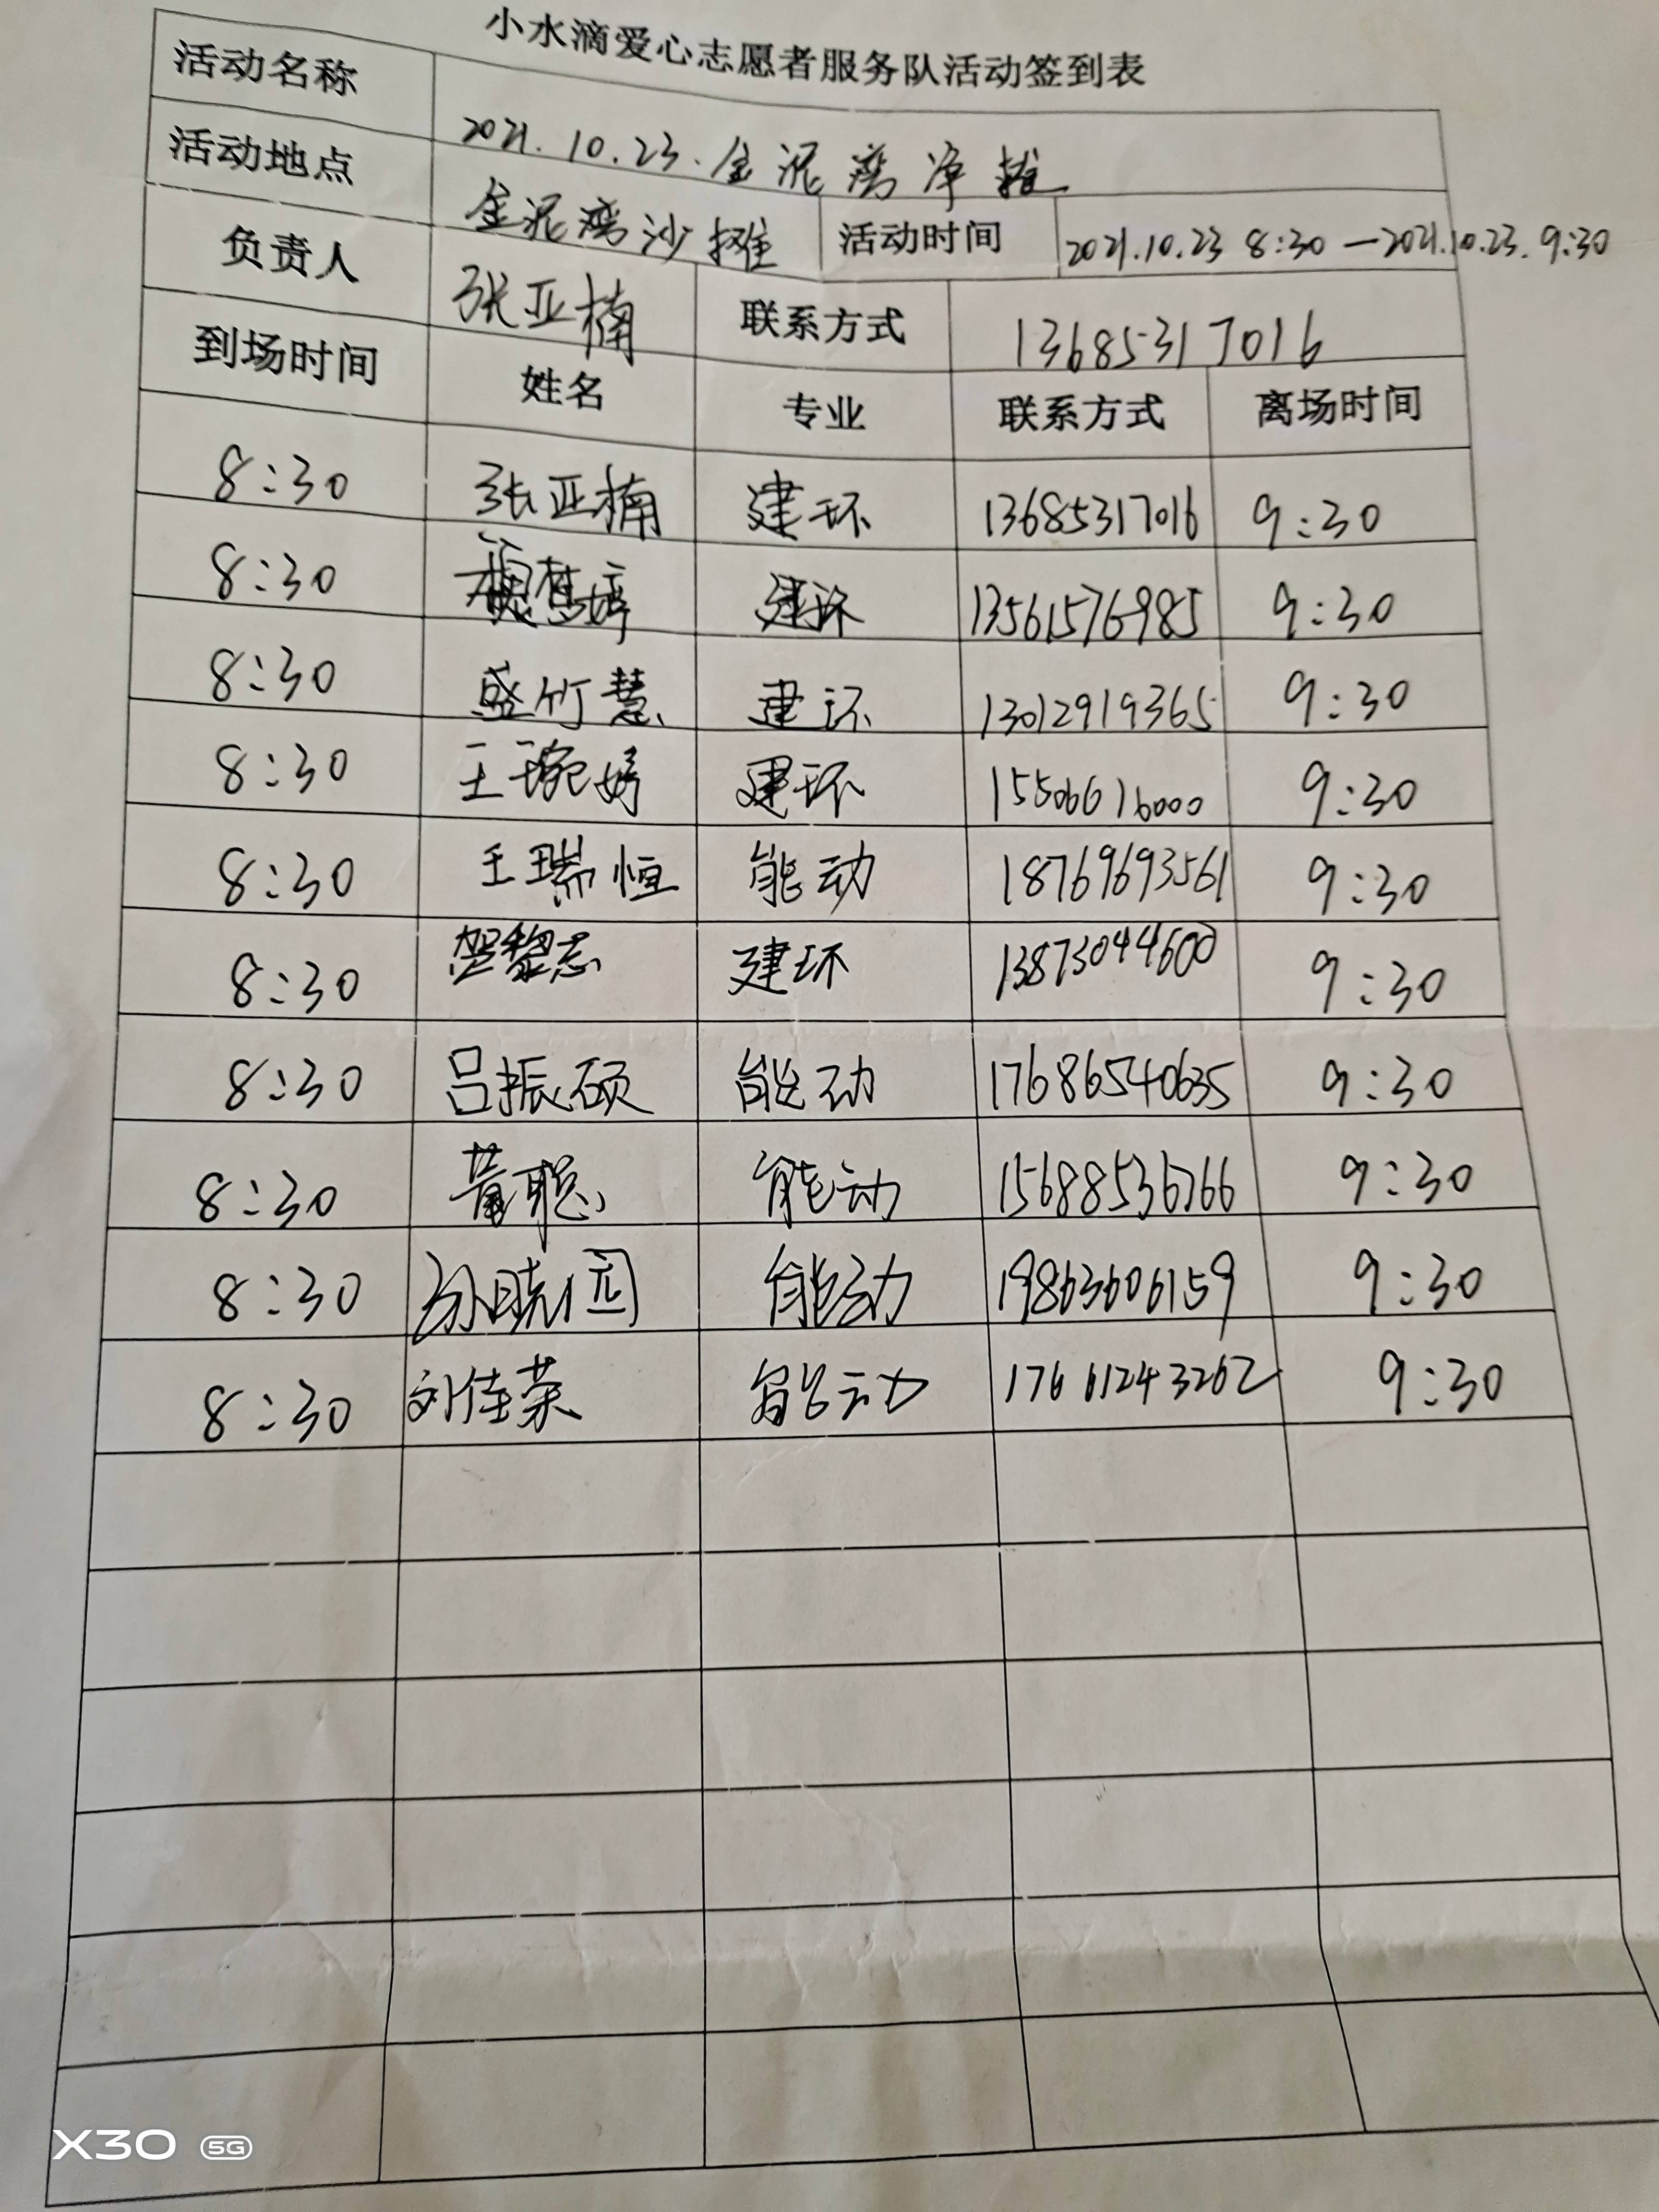 小水滴爱心志愿者服务队活动签到表
活动名称 2021.10.23.金泥湾净摊
活动地点 金泥湾沙摊 活动时间 2021.10.23 8:30—2021.10.23. 9:30
负责人 张亚楠 联系方式 13685317016
到场时间 姓名 专业 联系方式 离场时间
8:30 张亚楠 建环 13685317016 9:30
8:30 建环 13561576985 9:30
8:30 盛竹慧 建环 13012919365 9:30
8:30 王琬婷 建环 15506616000 9:30
8:30 王瑞恒 能动 18769693561 9:30
8:30 贺黎志 建环 13873044600 9:30
8:30 吕振硕 能动 17686540635 9:30
8:30 黄聪 能动 15688536766 9:30
8:30 孙晓园 能动 19863606159 9:30
8:30 刘佳荣 能动 17661243262 9:30
X30 5G